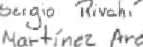 Sergio Rivahi
Martínez Arc